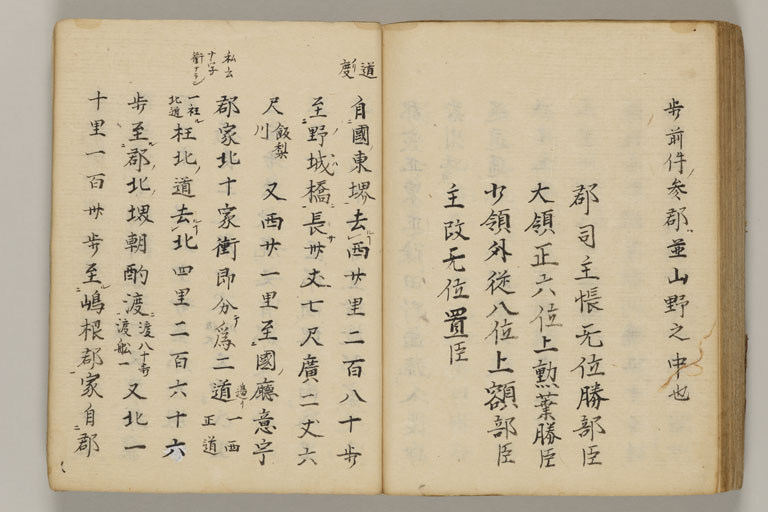 歩前件参郡並山野之中也
郡司主帳无位勝部臣
大領正六位上勲業勝臣
少領外従八位上額部臣
主政无位置臣
道度
自國東堺去西廿里二百八十歩
至野城橋長卅丈七尺廣二丈六
尺飯梨川又西廿一里至國廳意宇
郡家北十家衝即分為二道一西正道
私云
十字
一枉北道枉北道去北四里二百六十六
歩至郡北堺朝酌渡渡八十歩渡船一又北一
十里一百卌歩至嶋根郡家自郡